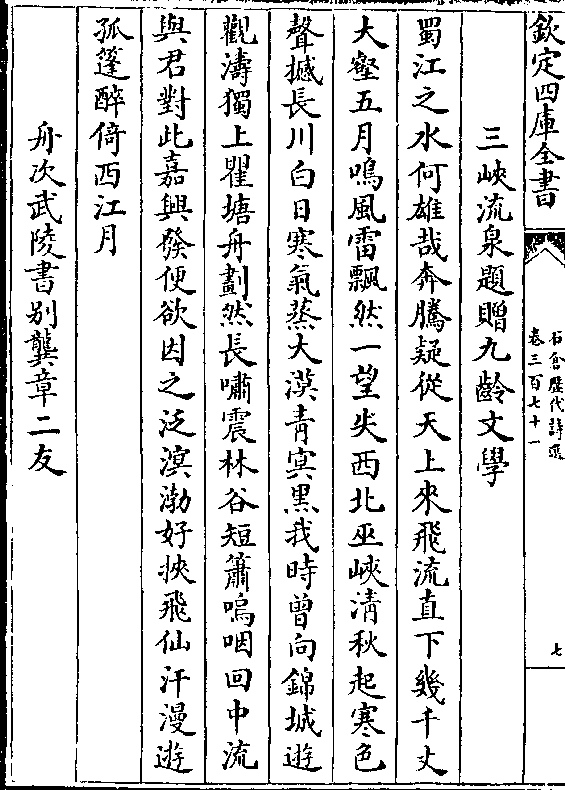 欽定四庫全書
石倉歷代詩選
卷三百七十一
七
三峽流泉題贈九齡文學
蜀江之水何雄哉奔騰疑從天上來飛流直下幾千丈
大壑五月鳴風雷飄然一望失西北巫峽清秋起寒色
聲撼長川白日寒氣蒸大漠青冥黑我時曾向錦城遊
觀濤獨上瞿塘舟劃然長嘯震林谷短簫嗚咽回中流
與君對此嘉興發便欲因之泛溟渤好挾飛仙汗漫遊
孤篷醉倚西江月
舟次武陵書別龔章二友